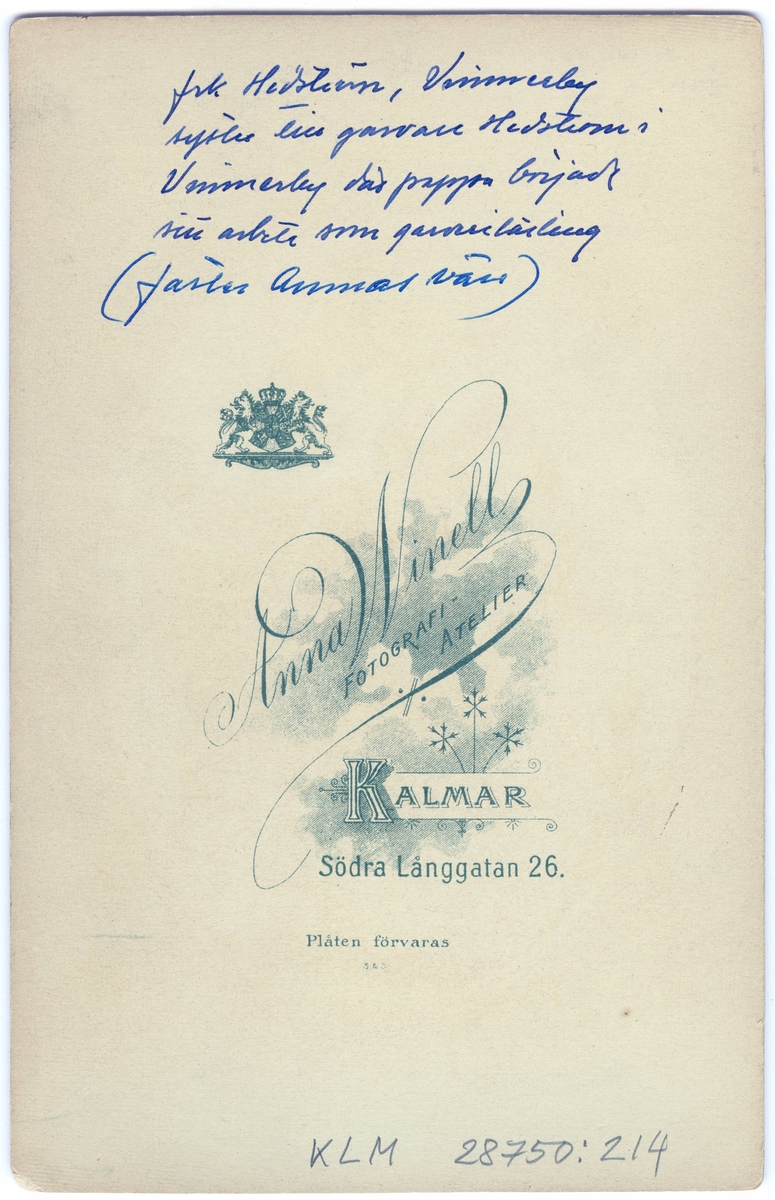 frk Hedström, Vimmerby
syster till garvare Hedström i
Vimmerby där pappa började
sitt arbete som garverilärling
(faster Annas vän)
Anna Winell
FOTOGRAFI-
ATELIER
KALMAR
Södra Långgatan 26.
Plåten förvaras
S & S
KLM 28750:214